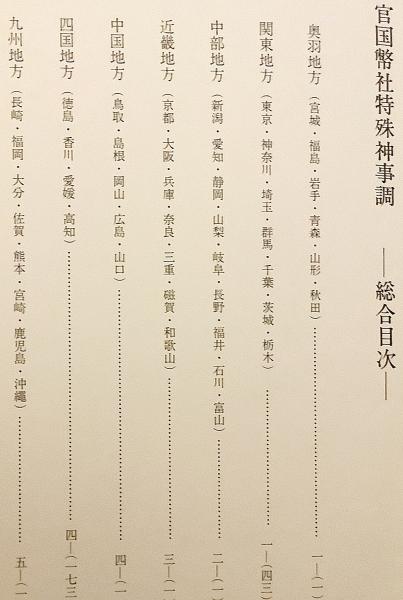 官国幣社特殊神事調 ――総合目次――
奥羽地方（宮城・福島・岩手・青森・山形・秋田）……………一―（一）
関東地方（東京・神奈川・埼玉・群馬・千葉・茨城・栃木）……………一―（四三）
中部地方（新潟・愛知・静岡・山梨・岐阜・長野・福井・石川・富山）……………二―（一
近畿地方（京都・大阪・兵庫・奈良・三重・磁賀・和歌山）……………三―（一
中国地方（鳥取・島根・岡山・広島・山口）……………四―（一
四国地方（徳島・香川・愛媛・高知）……………四―（一七三
九州地方（長崎・福岡・大分・佐賀・熊本・宮崎・鹿児島・沖縄）……………五―（一